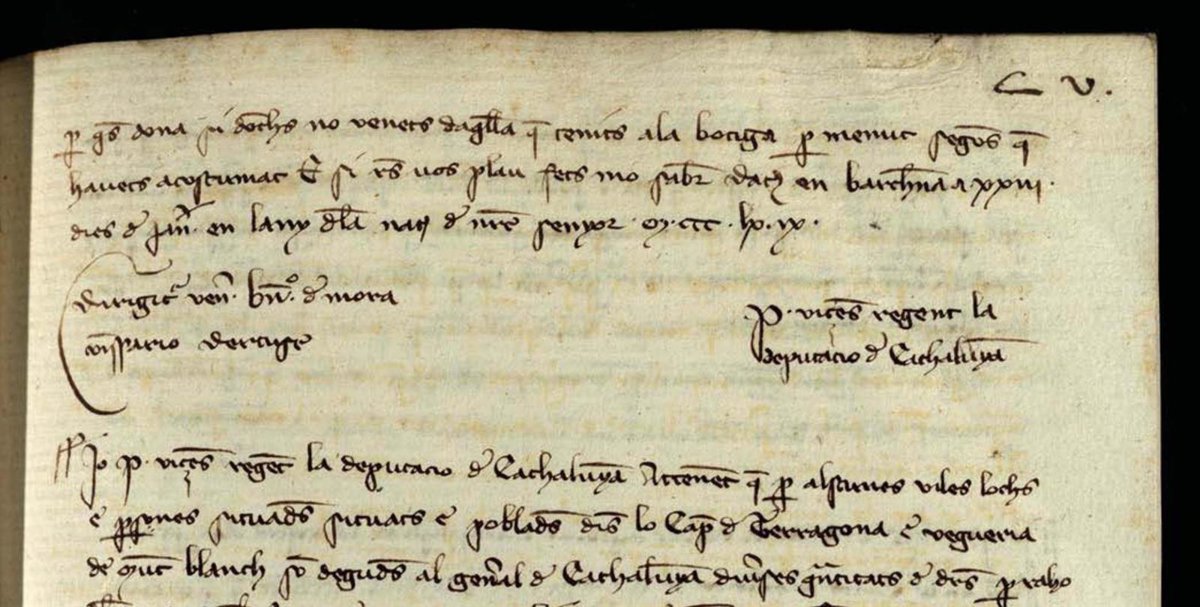 C V.
p gs dona si dochs no venets daqlla q tenits ala botiga p menut segons q
havets acostumat E si res vos plau fets mo saber dat en barchna a xxiii.
dies de jan. en lany dla nat de nre senyor. m. ccc. lx. ix.
dirigit ven. bn.º de mora
p. vicens regent la
comissario dertuse
deputacio d Cathalunya
Jo p. vicens regent la deputacio d Cathalunya Attenent q p algunes viles lochs
e psones situades situats e poblades dins lo Camp d Terragona e vegueria
de munt blanch son degudes al general d Cathalunya diverses quantitats d drs p raho